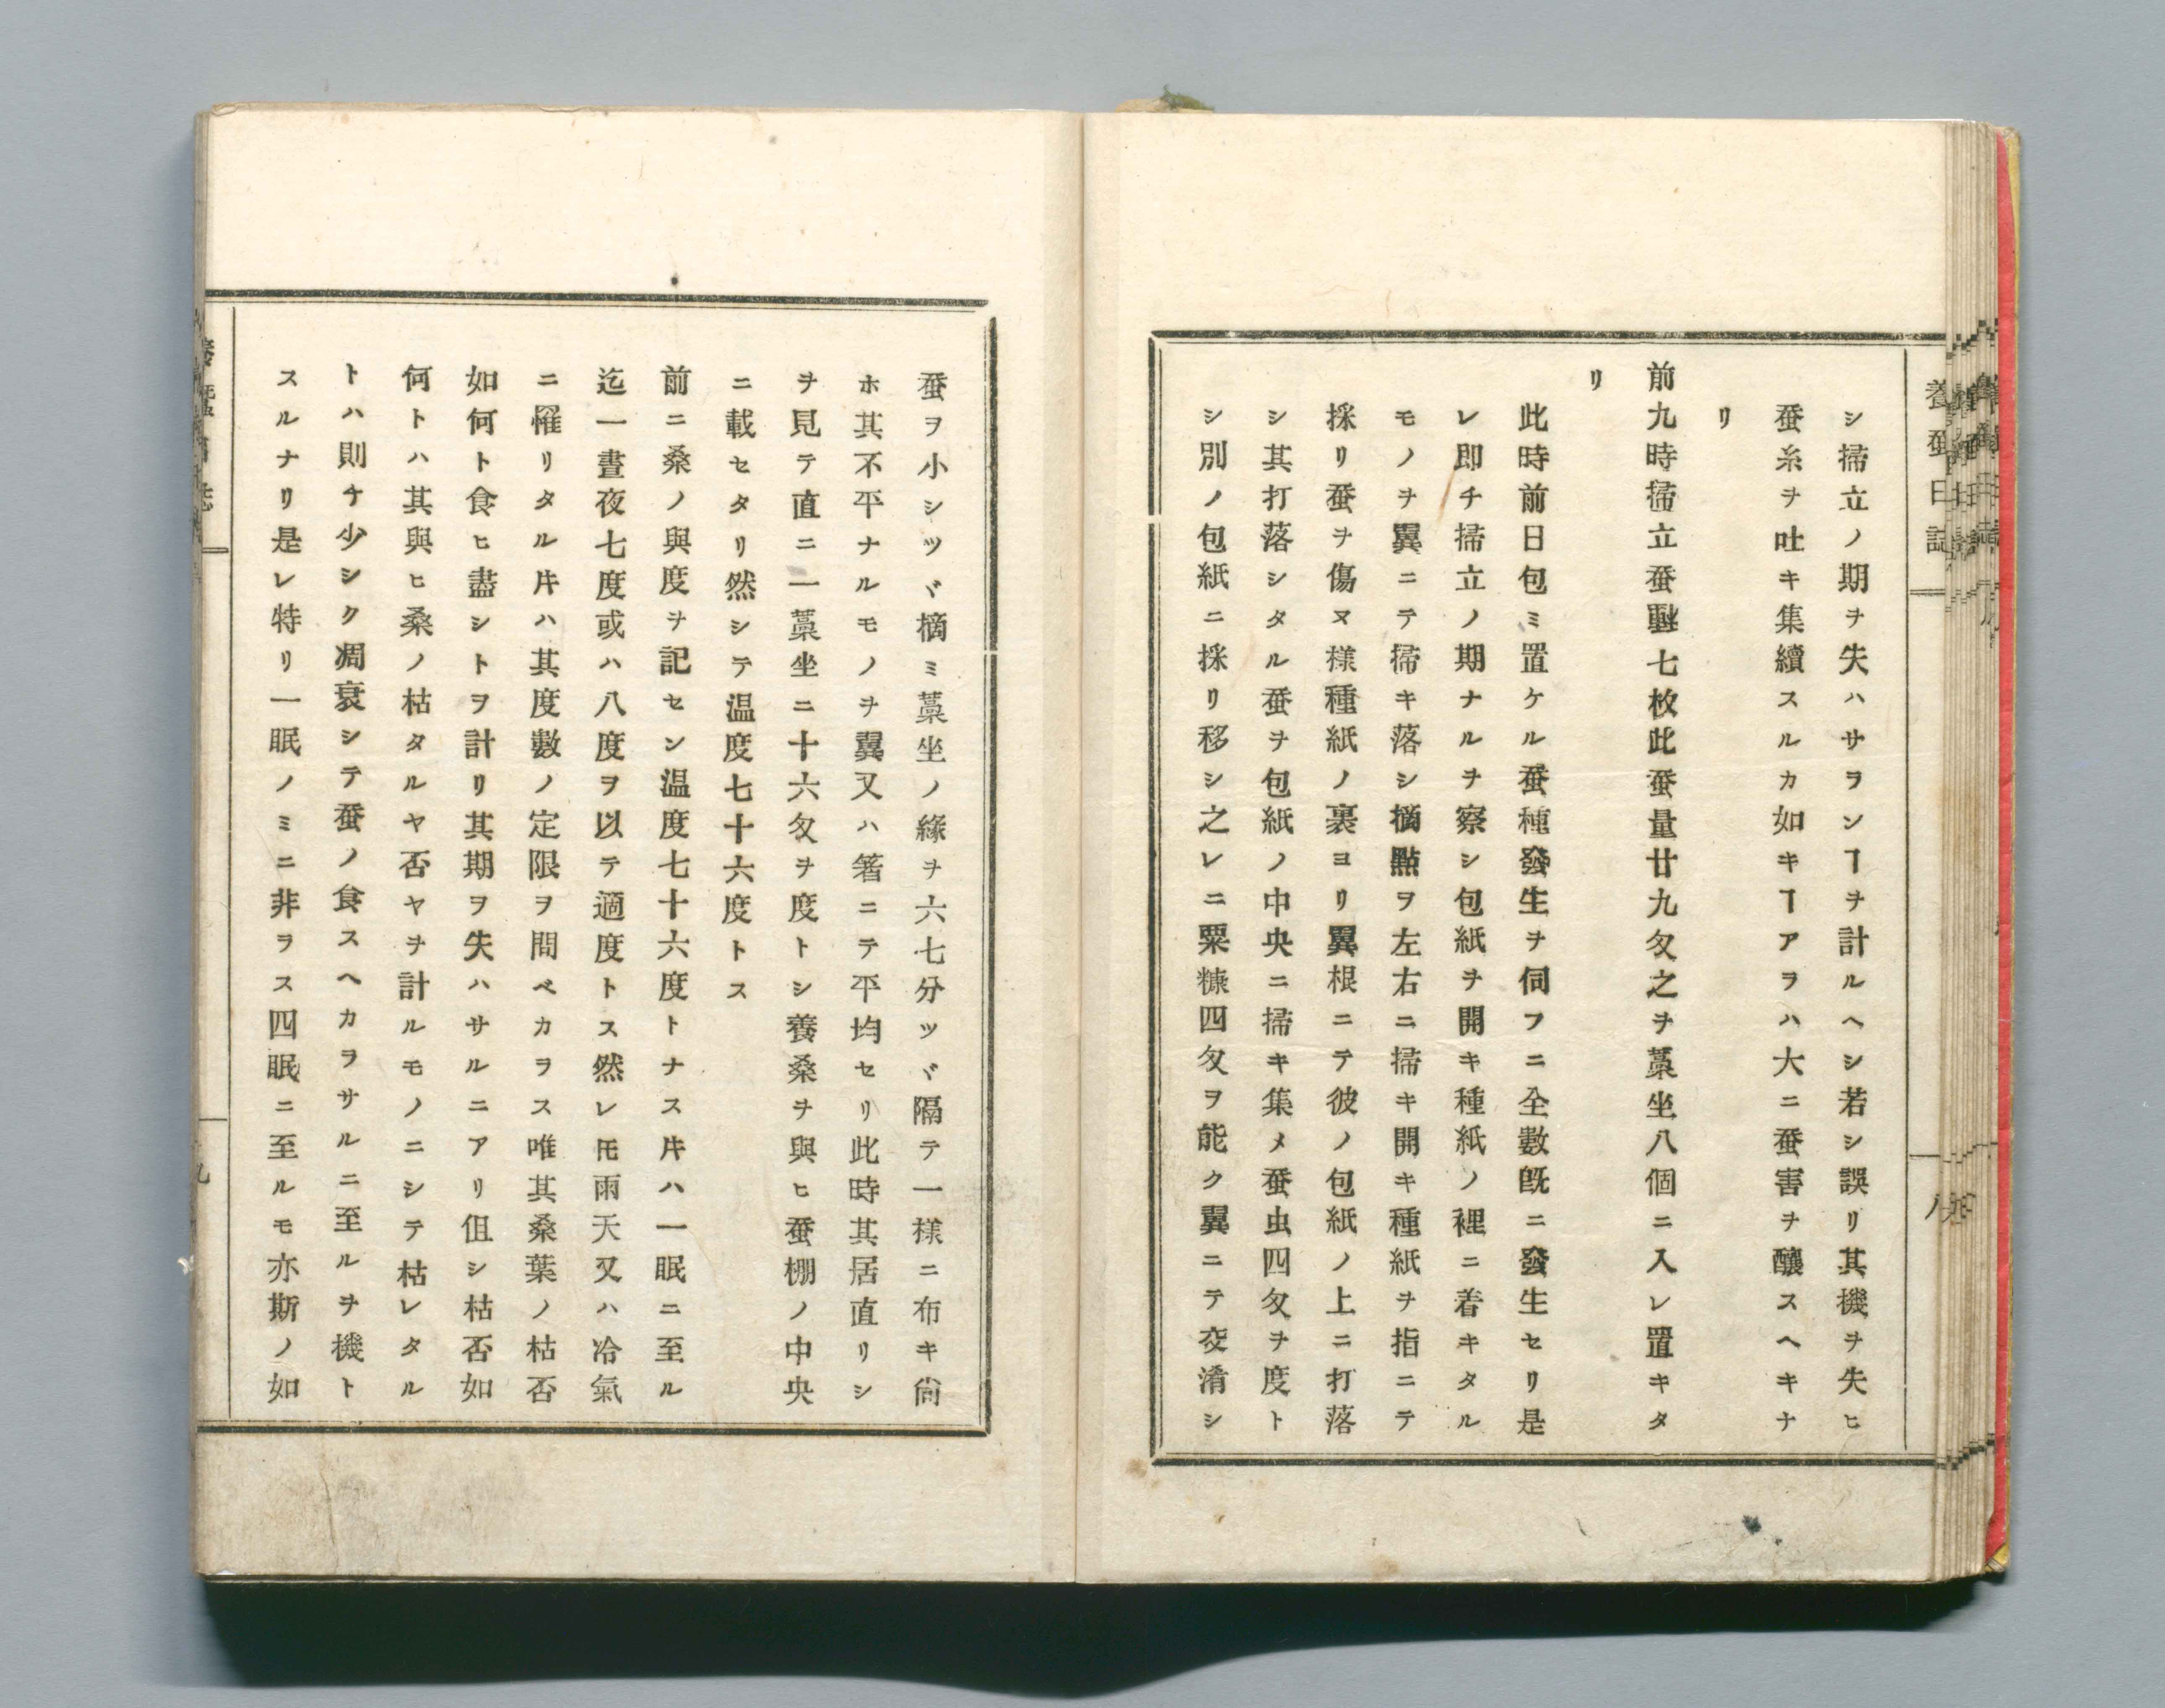 養蚕日誌
シ掃立ノ期ヲ失ハサヲンヿヲ計ルヘシ若シ誤リ其機ヲ失ヒ
蚕糸ヲ吐キ集續スルカ如キヿアヲハ大ニ蚕害ヲ釀スヘキナ
リ
前九時掃立蚕種七枚此蚕量廿九匁之ヲ藁坐八個ニ入レ置キタ
リ
此時前日包ミ置ケル蚕種發生ヲ伺フニ全數既ニ發生セリ是
レ即チ掃立ノ期ナルヲ察シ包紙ヲ開キ種紙ノ裡ニ着キタル
モノヲ翼ニテ掃キ落シ摘點ヲ左右ニ掃キ開キ種紙ヲ指ニテ
採リ蚕ヲ傷ヌ様種紙ノ裏ヨリ翼根ニテ彼ノ包紙ノ上ニ打落
シ其打落シタル蚕ヲ包紙ノ中央ニ掃キ集メ蚕虫四匁ヲ度ト
シ別ノ包紙ニ採リ移シ之レニ粟糠四匁ヲ能ク翼ニテ交淆シ
蚕ヲ小シツヾ摘ミ藁坐ノ緣ヲ六七分ツヾ隔テ一様ニ布キ尙
ホ其不平ナルモノヲ翼又ハ箸ニテ平均セリ此時其居直リシ
ヲ見テ直ニ一藁坐ニ十六匁ヲ度トシ養桑ヲ與ヒ蚕棚ノ中央
ニ載セタリ然シテ温度七十六度トス
前ニ桑ノ與度ヲ記セン温度七十六度トナス片ハ一眠ニ至ル
迄一晝夜七度或ハ八度ヲ以テ適度トス然レ𪜈雨天又ハ冷氣
ニ罹リタル片ハ其度數ノ定限ヲ問ベカヲス唯其桑葉ノ枯否
如何ト食ヒ盡シトヲ計リ其期ヲ失ハサルニアリ伹シ枯否如
何トハ其與ヒ桑ノ枯タルヤ否ヤヲ計ルモノニシテ枯レタル
トハ則チ少シク凋衰シテ蚕ノ食スヘカヲサルニ至ルヲ機ト
スルナリ是レ特リ一眠ノミニ非ヲス四眠ニ至ルモ亦斯ノ如